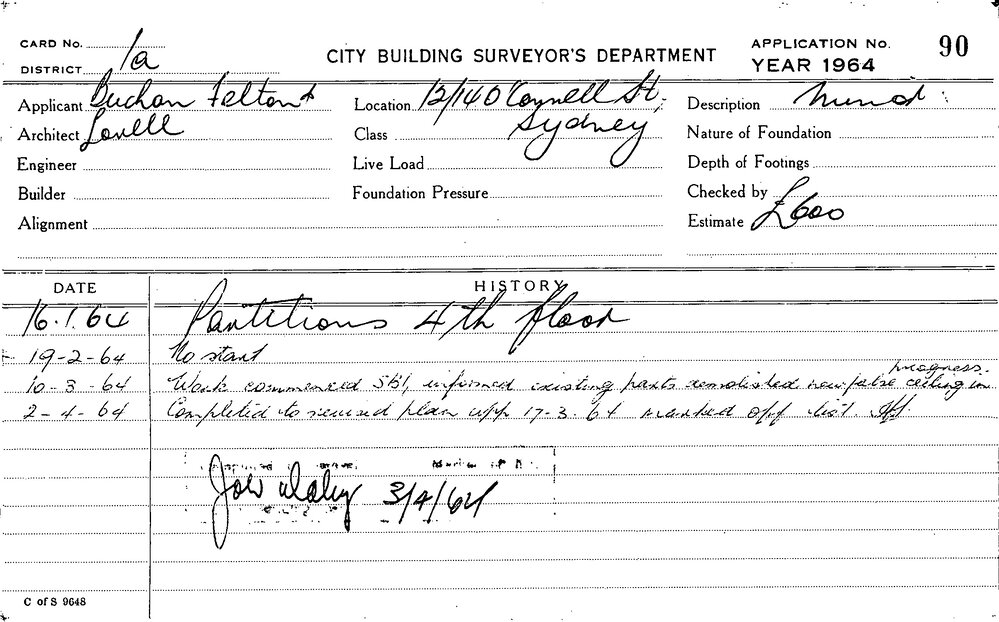 CARD No.
DISTRICT 1a
CITY BUILDING SURVEYOR'S DEPARTMENT
APPLICATION No. 90
YEAR 1964
Applicant Buchan Felton &
Architect Lovell
Engineer
Builder
Alignment
Location 12/14 O'Connell St,
Sydney
Class
Live Load
Foundation Pressure
Description
Nature of Foundation
Depth of Footings
Checked by
Estimate £600
DATE HISTORY
16.1.64 Partitions 4th floor
19-2-64 No start
progress.
10-3-64 Work commenced informed existing parts demolished new false ceiling in
2-4-64 Completed to revised plan app 17-3-64 marked off list.
3/4/64
C of S 9648